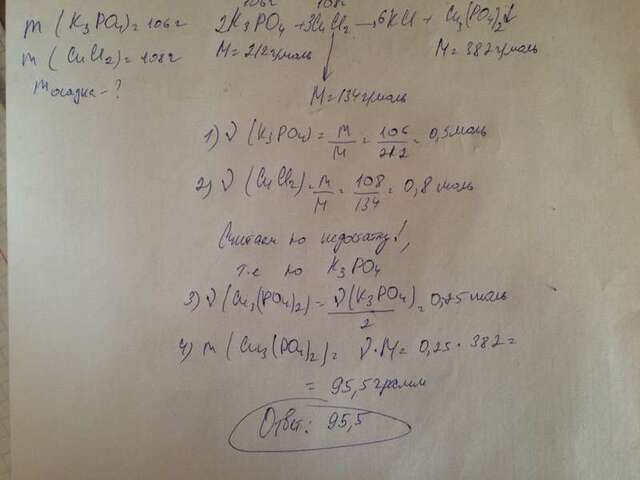 106г 108г
m (K₃PO₄) = 106г 2K₃PO₄ + 3CuCl₂ → 6KCl + Cu₃(PO₄)₂↓
m (CuCl₂) = 108г M = 212г/моль M = 382г/моль
m осадка - ? M = 134г/моль
1) ν (K₃PO₄) = m/M = 106/212 = 0,5моль
2) ν (CuCl₂) = m/M = 108/134 = 0,8 моль
Считаем по недостатку!,
т.е по K₃PO₄
3) ν (Cu₃(PO₄)₂) = ν(K₃PO₄)/2 = 0,25моль
4) m (Cu₃(PO₄)₂) = ν·M = 0,25 · 382 =
= 95,5грамм
Ответ: 95,5